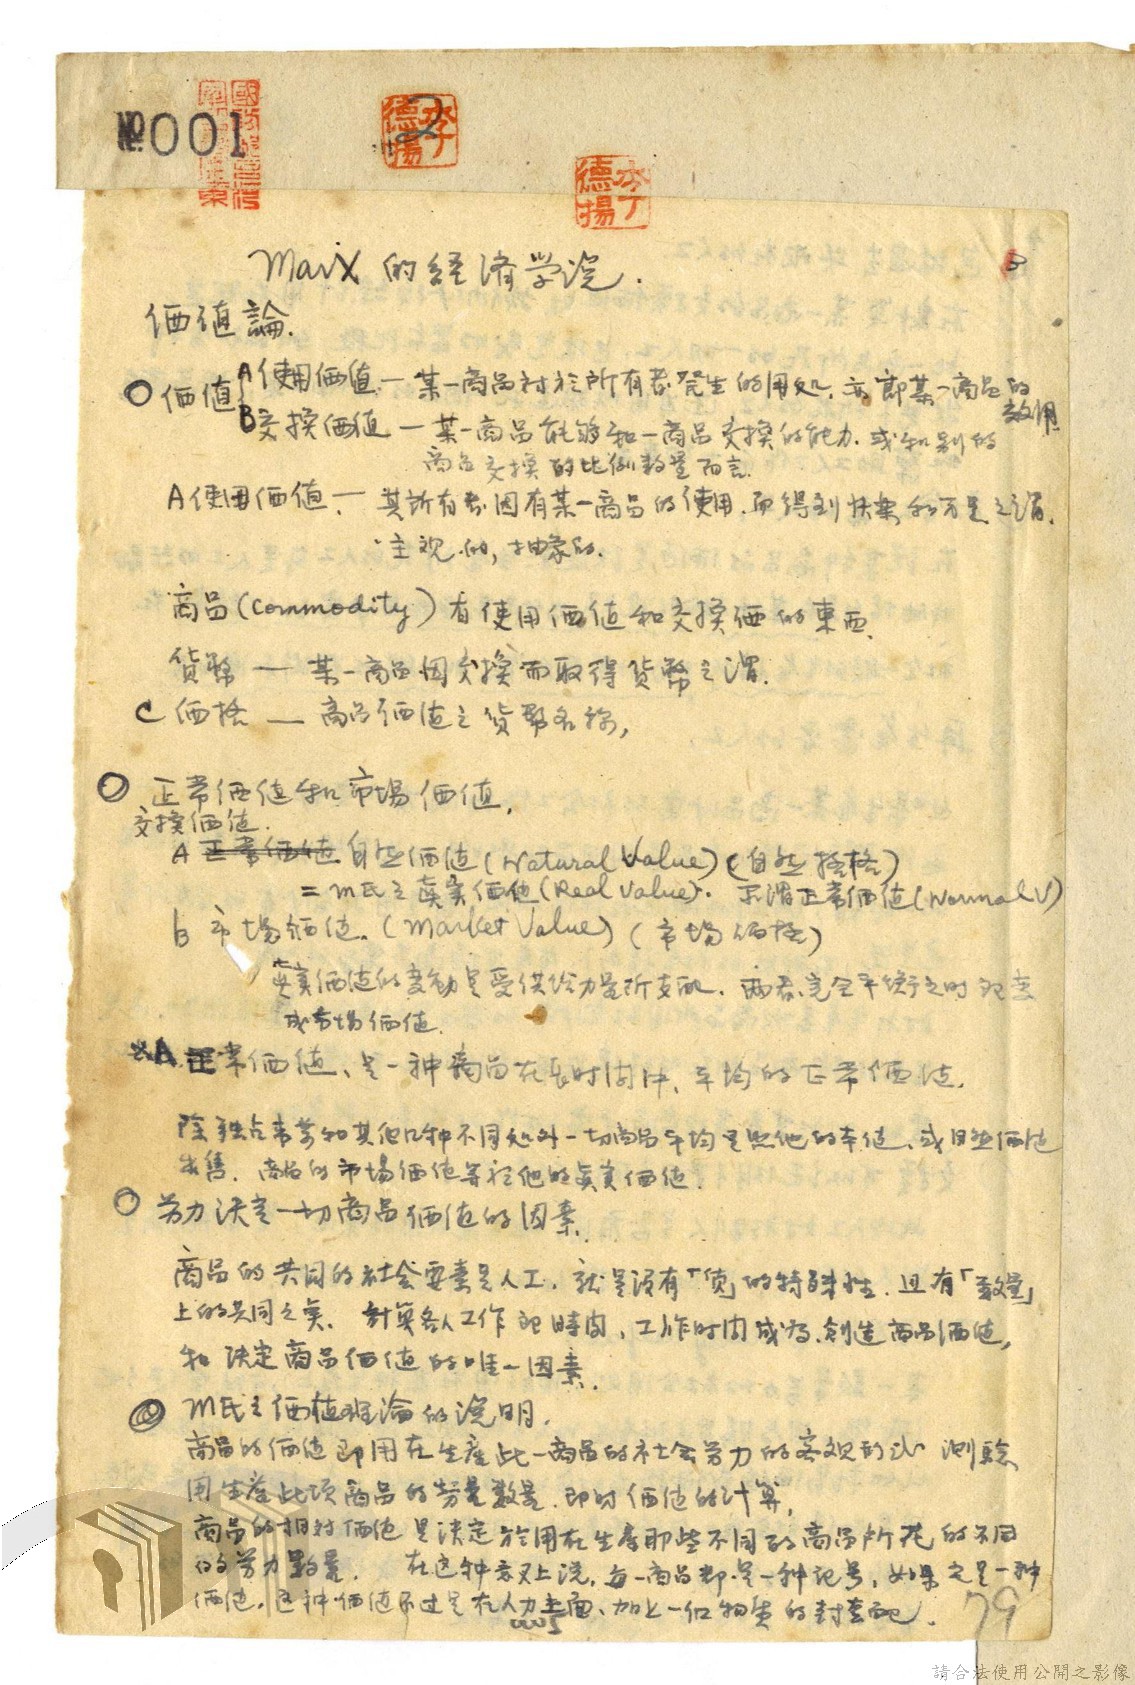 №001
2
李丁
德揚
李丁
德揚
3
Marx 的経済学説.
価値論.
○ 価値 A使用価値 — 某一商品対於所有者発生的用処. 亦即某一商品的効用
B交換価値 — 某一商品能够和一商品交換的能力. 或和别的
商品交換的比例数量而言.
A使用価値 — 其所有者因有某一商品的使用. 而得到快楽和万足之謂.
主观的, 抽象的.
商品(commodity) 有使用価値和交換価的東西.
貨幣 — 某一商品因交換而取得貨幣之謂.
C 価格 — 商品価値之貨幣名称,
○ 正常価値和市場価値,
交換価値.
A 正常価値 自然価値(Natural Value) (自然価格)
= M氏之真実価値(Real Value). 所謂正常価値(Normal V)
b 市場価値. (Market Value) (市場価格)
真実価値的変動是受供給力量所支配. 両者完全平衡之时
成市場価値.
A 正常価値、是一种商品在长时间中、平均的正常価値.
除独占事業和其他几种不同処外一切商品平均是照他的本値、或自然価値
出售. 商品的市場価値等於他的真実価値.
○ 労力決定一切商品価値的因素.
商品的共同的社会要素是人工. 就是没有「質」的特殊性. 且有「数量」
上的共同之点. 計算各人工作 時間、工作时间成為創造商品価値,
和決定商品価値的唯一因素.
◎ M氏之価値理論的説明.
商品的価値即用在生産此一商品的社会労力的客观的 測驗
用生産此項商品的労量数量. 即时価値的計算,
商品的相対価値是決定於用在生産那些不同的商品所花的不同
的労力数量. 在这种意义上説, 每一商品都是一种記号, 如果它是一种
価値, 这种価値不过是在人力上面、加上一个物質的封套 .
0005
79
請合法使用公開之影像